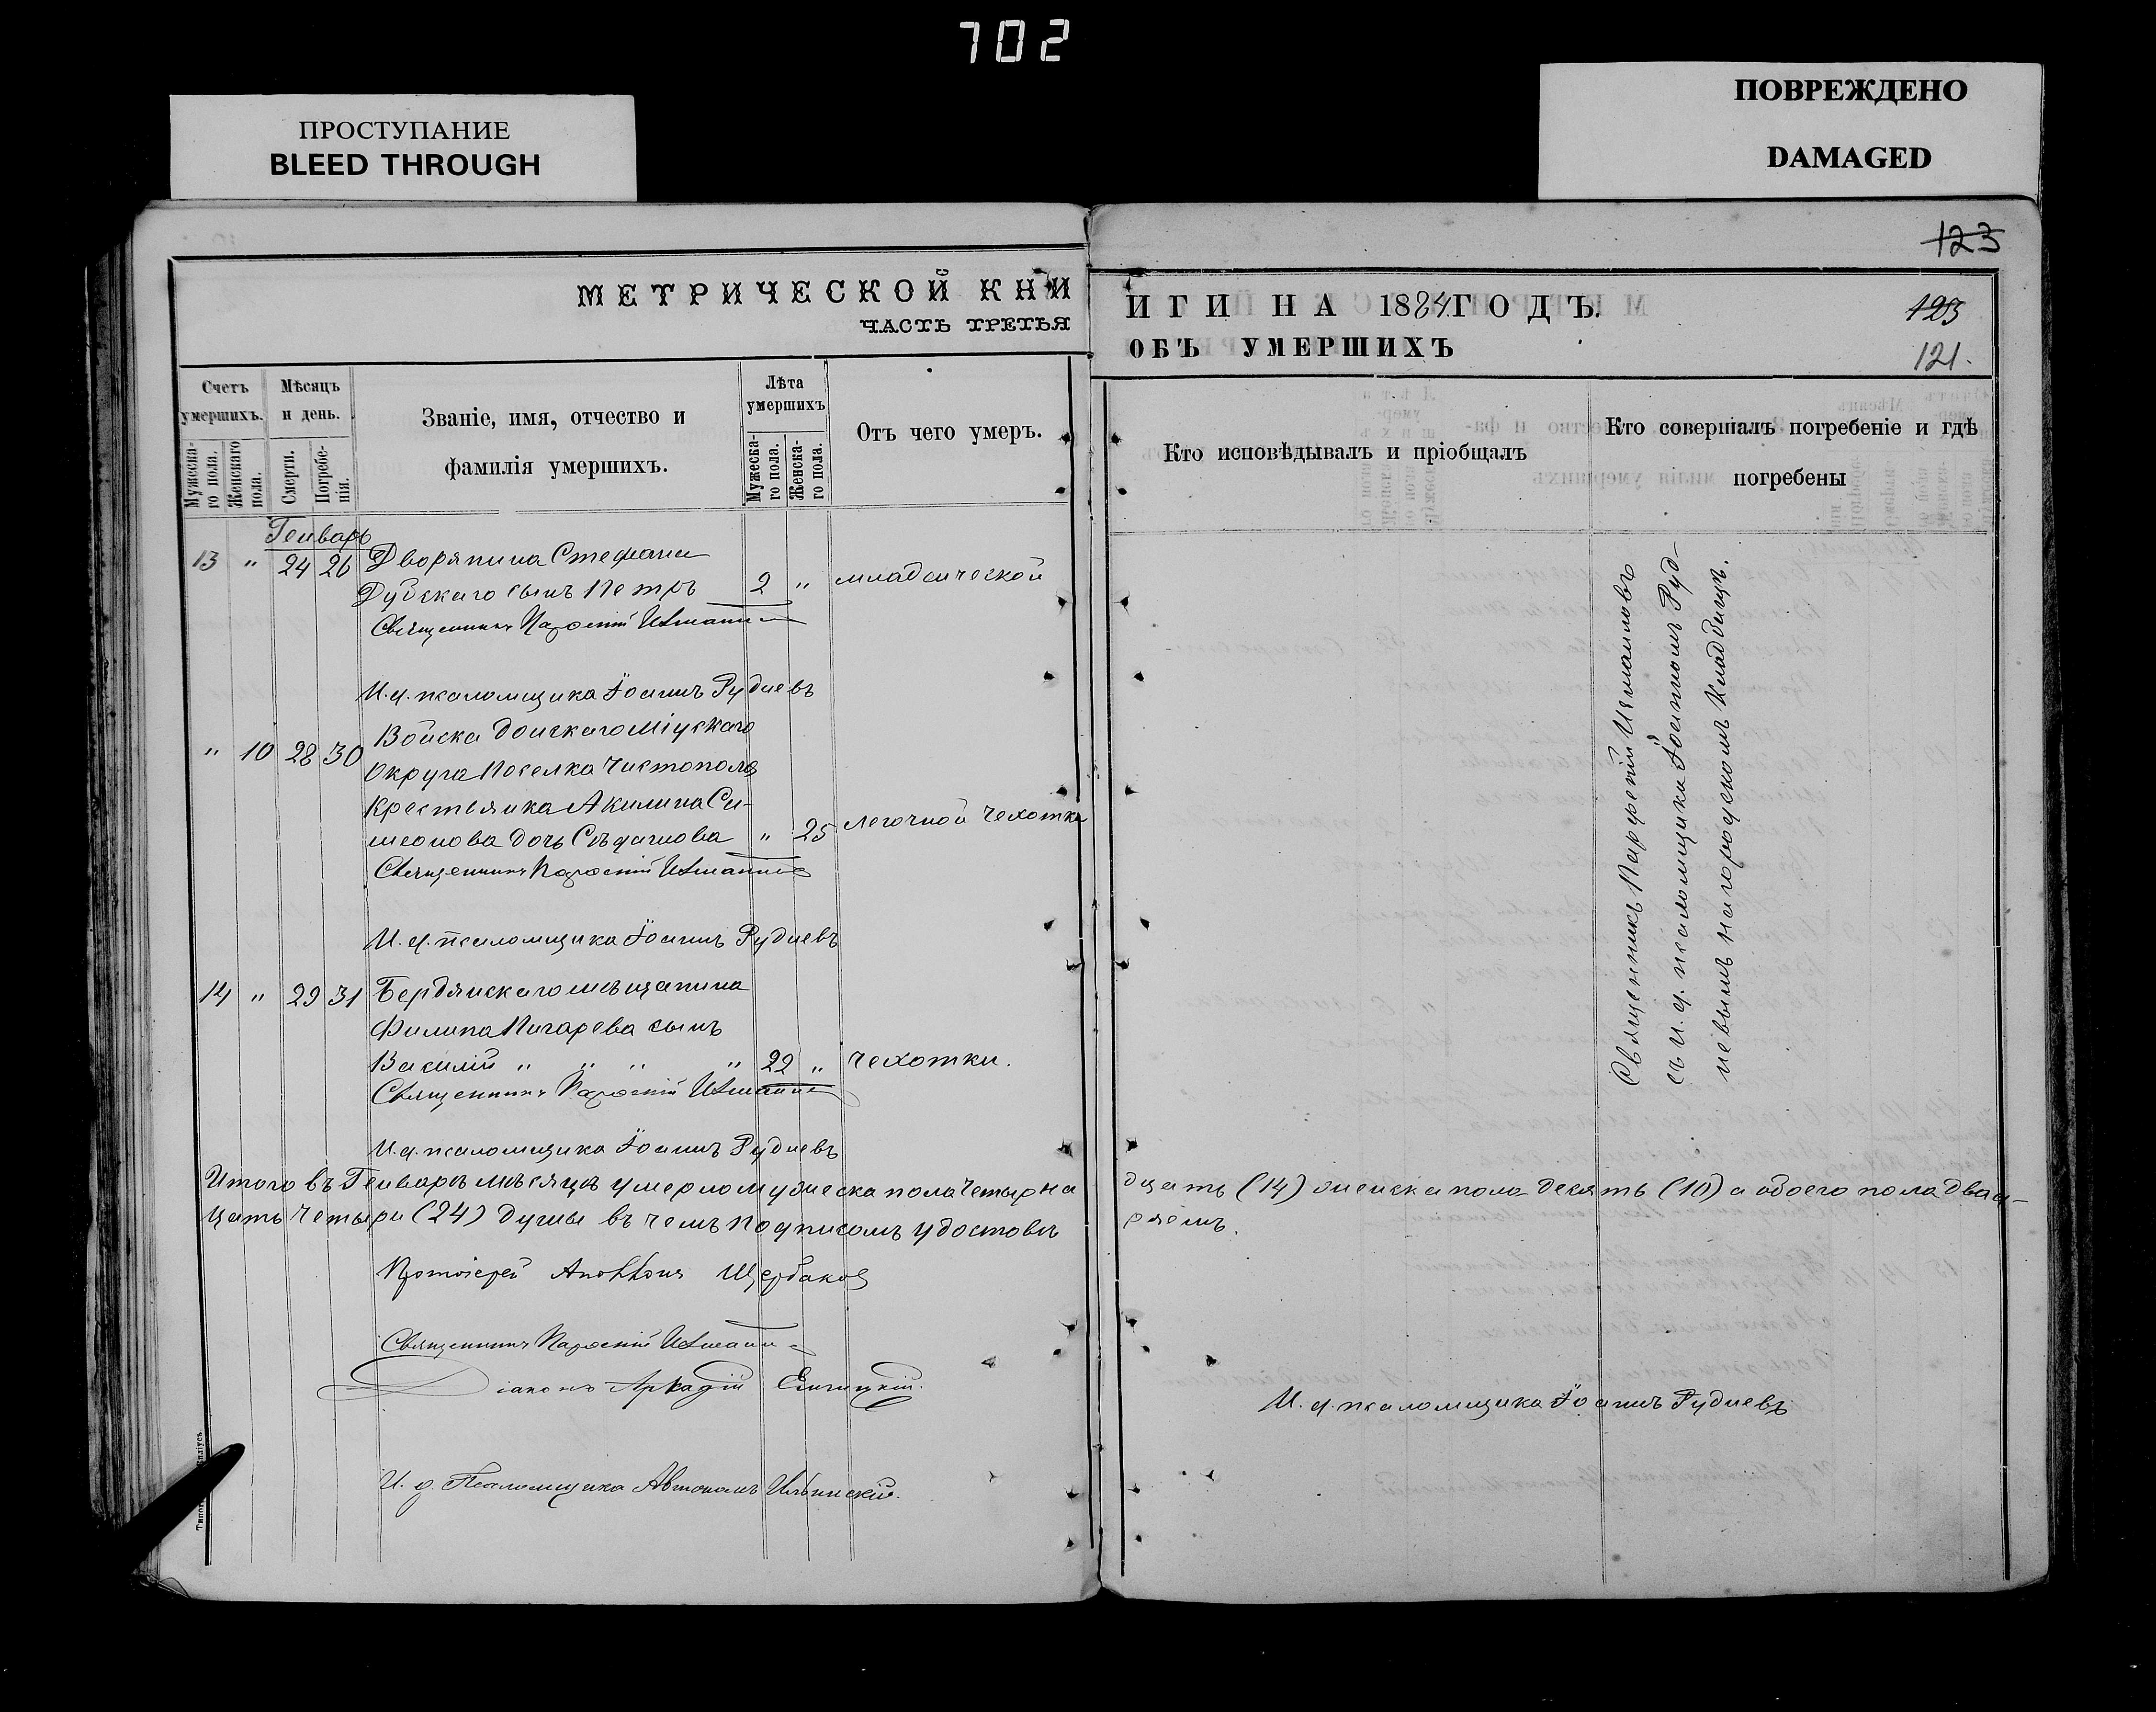 702
ПРОСТУПАНИЕ
BLEED THROUGH
ПОВРЕЖДЕНО
DAMAGED
123
МЕТРИЧЕСКОЙ КНИ
ЧАСТЬ ТРЕТЬЯ
ИГИ НА 1884 ГОДЪ.
ОБЪ УМЕРШИХЪ
123
121.
Счетъ умершихъ.
Мужеска-го пола.
Женскаго пола.
Мѣсяцъ и день.
Смерти.
Погребе-нія.
Званіе, имя, отчество и
фамилія умершихъ.
Лѣта умершихъ
Мужеска-го пола.
Женска-го пола.
Отъ чего умеръ.
Кто исповѣдывалъ и пріобщалъ
Кто совершалъ погребеніе и гдѣ
погребены
Генварь
13 " 24 26 Дворянина Стефана
Дубскаго сынъ Петръ 2 " младенческой
Священникъ Парѳеній
И.д. псаломщика Іоаннъ Рудневъ
Войска Донскаго Міускаго
" 10 28 30 Округа Поселка Чистополя
Крестьянка Акилина Си-
меонова дочь " 25 легочной чехотки
Священникъ Парѳеній
И.д. псаломщика Іоаннъ Рудневъ
14 " 29 31 Бердянскаго мѣщанина
Филипа Пигарева сынъ
Василій " " " " 22 " чехотки.
Священникъ Парѳеній
И.д. псаломщика Іоаннъ Рудневъ
Священникъ Парфеній Измаиловъ
съ и.д. псаломщика Іоанномъ Руд-
невымъ на городскомъ кладбищѣ.
Итого въ Генварѣ мѣсяцѣ умерло мужеска пола четырна
дцать (14) женска пола десять (10) а обоего пола двад-
цать четыри (24) души въ чемъ подписомъ удостовѣ
ряемъ.
Протоіерей Аполлонъ Щербаковъ
Священникъ Парѳеній
Діаконъ Аркадій
И.д. псаломщика Іоаннъ Рудневъ
И.д. Псаломщика Автономъ Ильинскій.